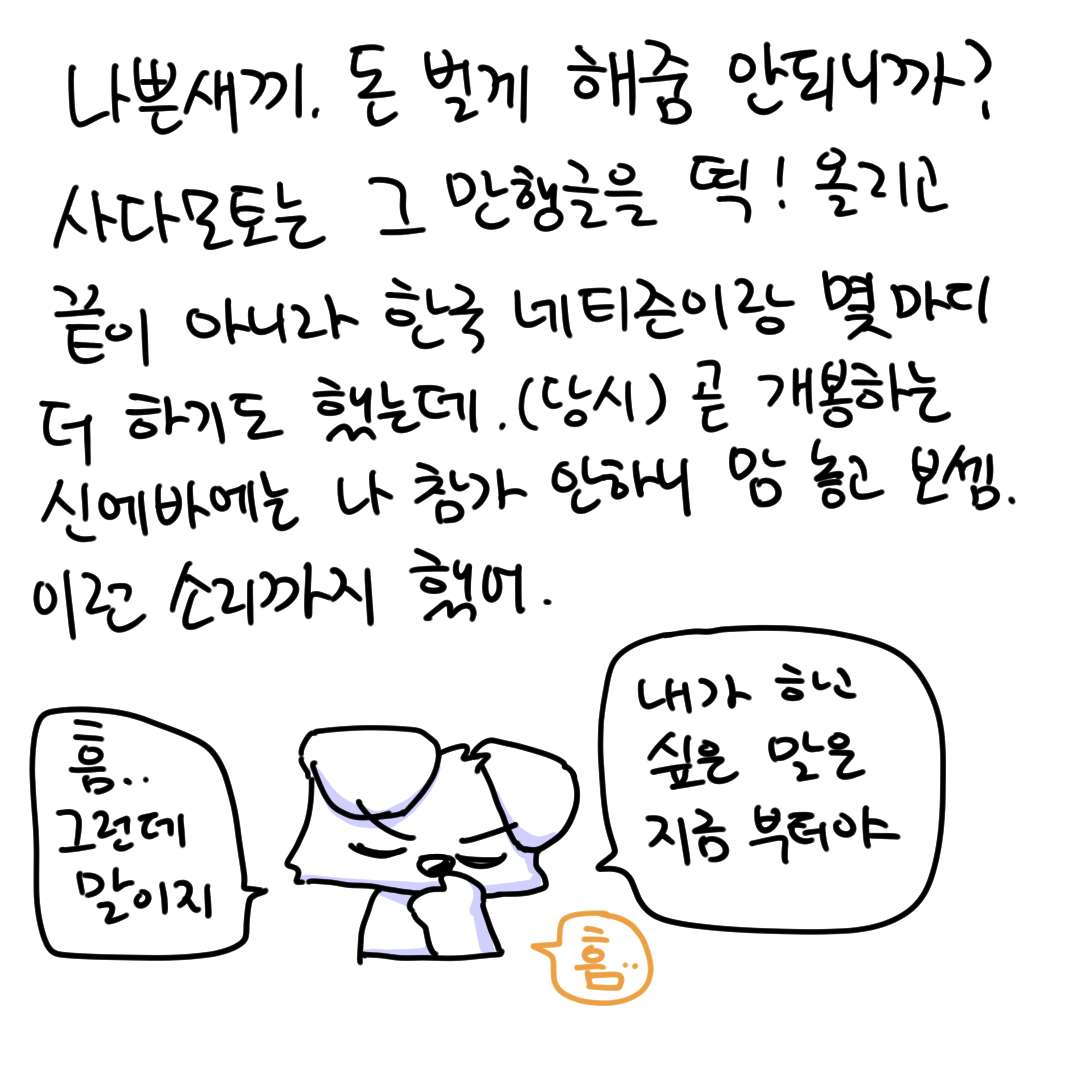 나쁜새끼. 돈 벌게 해줌 안되니까?
사다모토는 그 만행글을 떡! 올리고
끝이 아니라 한국 네티즌이랑 몇마디
더 하기도 했는데. (당시) 곧 개봉하는
신에바에는 나 참가 안하니 맘 놓고 보셈.
이런 소리까지 했어.
흠..
그런데
말이지
내가 하고
싶은 말은
지금 부터야
흠..